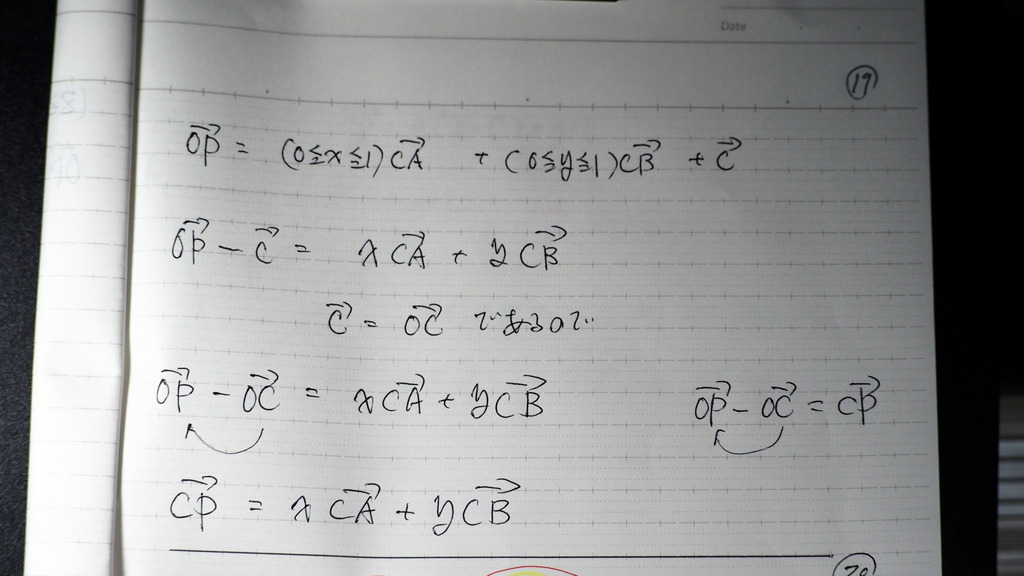 Date
⑲
$\overrightarrow{OP} = (0 \leqq x \leqq 1)\overrightarrow{CA} + (0 \leqq y \leqq 1)\overrightarrow{CB} + \overrightarrow{C}$
$\overrightarrow{OP} - \overrightarrow{C} = x\overrightarrow{CA} + y\overrightarrow{CB}$
$\overrightarrow{C} = \overrightarrow{OC}$ であるので
$\overrightarrow{OP} - \overrightarrow{OC} = x\overrightarrow{CA} + y\overrightarrow{CB}$
$\overrightarrow{OP} - \overrightarrow{OC} = \overrightarrow{CP}$
$\overrightarrow{CP} = x\overrightarrow{CA} + y\overrightarrow{CB}$
⑳